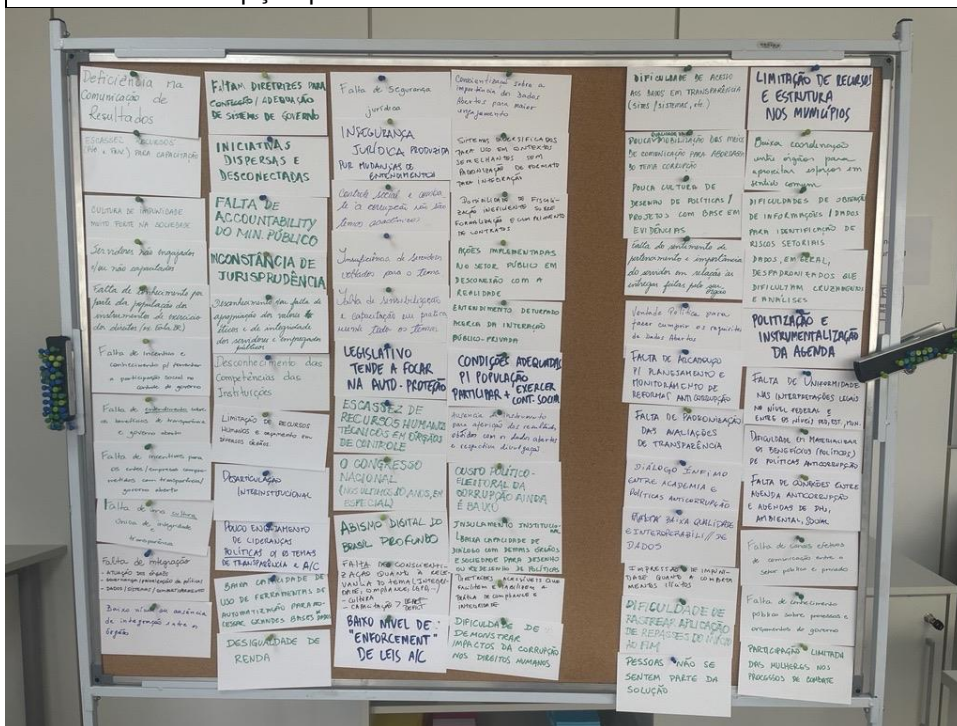 Deficiência na
Comunicação de
Resultados
ESCASSEZ RECURSOS
PARA CAPACITAÇÃO
CULTURA DE IMPUNIDADE
MUITO FORTE NA SOCIEDADE
Servidores não engajados
e/ou não capacitados
Falta de conhecimento por
parte da população dos
instrumentos de exercício
dos direitos (ex Fala.BR)
Falta de incentivo e
conhecimento p/ fomentar
a participação social no
controle do governo
Falta de entendimento sobre
os benefícios de transparência
e governo aberto
Falta de incentivos para
os entes/empresas comprometidos
com transparência/
governo aberto
Falta de uma cultura
de integridade
transparência
Falta de integração
- ATUAÇÃO DOS ÓRGÃOS
- DADOS/SISTEMAS/
Baixo nível ou ausência
de integração entre os
órgãos
FALTAM DIRETRIZES PARA
CONTRATAÇÃO/ADEQUAÇÃO
DE SISTEMAS DE GOVERNO
INICIATIVAS
DISPERSAS E
DESCONECTADAS
FALTA DE
ACCOUNTABILITY
DO MIN. PÚBLICO
INCONSTÂNCIA DE
JURISPRUDÊNCIA
Desconhecimento ou falta de
apropriação dos valores
éticos e de integridade
dos servidores e empregados
públicos
Desconhecimento das
Competências das
Instituições
LIMITAÇÃO DE RECURSOS
HUMANOS E orçamento em
diversos órgãos
DESARTICULAÇÃO
INTERINSTITUCIONAL
POUCO ENGAJAMENTO
DE LIDERANÇAS
POLÍTICAS C/ OS TEMAS
DE TRANSPARÊNCIA e A/C
BAIXA CAPACIDADE DE
USO DE FERRAMENTAS DE
AUTOMATIZAÇÃO PARA
GRANDES BASES DADOS
DESIGUALDADE DE
RENDA
Falta de Segurança
jurídica
INSEGURANÇA
JURÍDICA PRODUZIDA
POR MUDANÇAS DE
ENTENDIMENTOS
Controle social e combate
à corrupção não são
temas
Insuficiência de Servidores
voltados para o tema
Falta de sensibilização
e capacitação em
todos os temas
LEGISLATIVO
TENDE A FOCAR
NA AUTO-PROTEÇÃO
ESCASSEZ DE
RECURSOS HUMANOS
TÉCNICOS EM ÓRGÃOS
DE CONTROLE
O CONGRESSO
NACIONAL
(NOS ÚLTIMOS 10 ANOS, EM
ESPECIAL)
ABISMO DIGITAL DO
BRASIL PROFUNDO
FALTA DE CONSCIENTI-
ZAÇÃO QUANTO À RELE-
VÂNCIA DO TEMA (INTEGRI-
DADE, COMPLIANCE, LGPD...)
- CULTURA
- CAPACITAÇÃO
BAIXO NÍVEL DE
"ENFORCEMENT"
DE LEIS A/C
Conscientização sobre a
importância dos Dados
Abertos para maior
engajamento
SISTEMAS DIVERSIFICADOS
PARA USO EM CONTEXTOS
SEMELHANTES SEM
PADRONIZAÇÃO DE FORMATO
PARA INTEGRAÇÃO
FISCALI-
ZAÇÃO INEFICIENTE SOBRE
FORMALIZAÇÃO E CUMPRIMENTO
DE CONTRATOS
AÇÕES IMPLEMENTADAS
NO SETOR PÚBLICO EM
DESCONEXÃO COM A
REALIDADE
ENTENDIMENTO DETURPADO
ACERCA DA INTERAÇÃO
PÚBLICO-PRIVADA
CONDIÇÕES ADEQUADAS
P/ POPULAÇÃO
PARTICIPAR + EXERCER
CONT. SOCIAL
Ausência de instrumento
para aferição dos resultados
obtidos com os dados abertos
e respectiva divulgação
CUSTO POLÍTICO-
ELEITORAL DA
CORRUPÇÃO AINDA
É BAIXO
INSULAMENTO INSTITUCIONAL
(BAIXA CAPACIDADE DE
DIÁLOGO COM DEMAIS ÓRGÃOS
E SOCIEDADE PARA DESENHO
OU REDESENHO DE POLÍTICAS)
DIRETRIZES ACESSÍVEIS QUE
FACILITEM E VIABILIZEM A
PRÁTICA DE COMPLIANCE E
INTEGRIDADE
DIFICULDADE DE
DEMONSTRAR
IMPACTOS DA CORRUPÇÃO
NOS DIREITOS HUMANOS
DIFICULDADE DE ACESSO
AOS DADOS EM TRANSPARÊNCIA
(Sites/sistemas, etc)
POUCA MOBILIZAÇÃO DOS MEIOS
DE COMUNICAÇÃO PARA ABORDAGEM
DO TEMA CORRUPÇÃO
POUCA CULTURA DE
DESENHO DE POLÍTICAS/
PROJETOS COM BASE EM
EVIDÊNCIAS
Falta do sentimento de
pertencimento e importância
do servidor em relação às
entregas feitas pelo seu
órgão
Vontade Política para
fazer cumprir os requisitos
de Dados Abertos
FALTA DE ARCABOUÇO
P/ PLANEJAMENTO E
MONITORAMENTO DE
REFORMAS ANTICORRUPÇÃO
FALTA DE PADRONIZAÇÃO
DAS AVALIAÇÕES
DE TRANSPARÊNCIA
DIÁLOGO ÍNFIMO
ENTRE ACADEMIA E
POLÍTICAS ANTICORRUPÇÃO
BAIXA QUALIDADE
E INTEROPERABILI// DE
DADOS
IMPRESSÃO DE IMPUNI-
DADE QUANTO A COMPORTA-
MENTOS ILÍCITOS
DIFICULDADE DE
RASTREAR APLICAÇÃO
DE REPASSES DO INÍCIO
AO FIM
PESSOAS NÃO SE
SENTEM PARTE DA
SOLUÇÃO
LIMITAÇÃO DE RECURSOS
E ESTRUTURA
NOS MUNICÍPIOS
Baixa coordenação
entre órgãos para
aproveitar esforços em
sentido comum
DIFICULDADES DE OBTENÇÃO
DE INFORMAÇÕES/DADOS
PARA IDENTIFICAÇÃO DE
RISCOS SETORIAIS
DADOS, EM GERAL,
DESPADRONIZADOS QUE
DIFICULTAM CRUZAMENTOS
E ANÁLISES
POLITIZAÇÃO E
INSTRUMENTALIZAÇÃO
DA AGENDA
FALTA DE UNIFORMIDADE
NAS INTERPRETAÇÕES LEGAIS
NO NÍVEL FEDERAL E
ENTRE OS NÍVEIS FED, EST, MUN.
DIFICULDADE EM MATERIALIZAR
OS BENEFÍCIOS (POLÍTICOS)
DE POLÍTICAS ANTICORRUPÇÃO
FALTA DE CONEXÕES ENTRE
AGENDA ANTICORRUPÇÃO
E AGENDAS DE DHs,
AMBIENTAL, SOCIAL
Falta de canais efetivos
de comunicação entre o
setor público e privado
Falta de conhecimento
público sobre processos e
orçamentos do governo
PARTICIPAÇÃO LIMITADA
DAS MULHERES NOS
PROCESSOS DE COMBATE